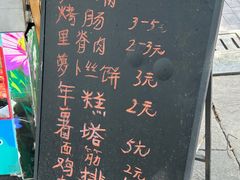 肉
烤肠 3-5元
里脊肉 2-3元
萝卜丝饼 3元
年糕 2元
薯塔 5元
面筋 2元
鸡排